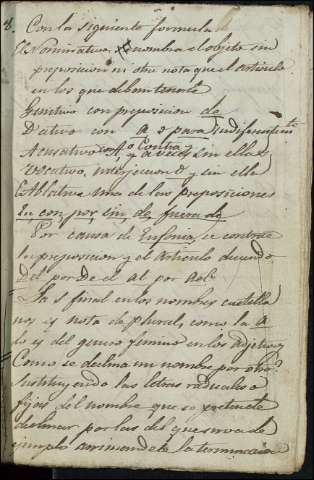 8.
Con la siguiente formula
El Nominativo, nombra el objeto sin
preposicion ni otra nota que el articulo
en los que deben tenerle
Genitivo con preposicion de
Dativo con a o para indiferentemte
Acusativo con A, o Contra, y a veces sin ella
Vocativo, interjecion o, y sin ella
El Ablativo una de las preposiciones
En con, por, sin, de, fuera de
Por causa de Eufonia, se contrae
la preposicion y el articulo diciendo
Del por De el al por a el
La s final en los nombres castella
nos es nota de plural, como la a
lo es del genero femino en los Adjetivos
Como se declina un nombre por otro
Sustituyendo las letras radicales o
fijas del nombre que se pretende
declinar por las del que sirva de
ejemplo arrimandole la terminacion